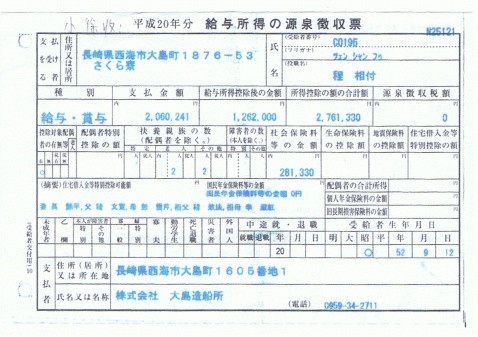 平成20年分 給与所得の源泉徴収票
N25121
支払を受ける者
住所又は居所
長崎県西海市大島町1876-53
さくら寮
氏名
(受給者番号)
C0195
(フリガナ)
ツェン シャン フゥ
(役職名)
程 相付
種別 支払金額 給与所得控除後の金額 所得控除の額の合計額 源泉徴収税額
給与・賞与 2,060,241 1,262,000 2,761,330 0
控除対象配偶者の有無等 配偶者特別控除の額 扶養親族の数(配偶者を除く。) 障害者の数(本人を除く。) 社会保険料等の金額 生命保険料の控除額 地震保険料の控除額 住宅借入金等特別控除の額
2 2 281,330
(摘要) 住宅借入金等特別控除可能額
国民年金保険料等の金額
国民年金保険料等の金額 0円
配偶者の合計所得
個人年金保険料の金額
旧長期損害保険料の金額
未成年者 乙欄 本人が障害者 特別 その他 寡婦 一般 特別 寡夫 勤労学生 死亡退職 災害者 外国人 中途就・退職 受給者生年月日
就職 退職 年 月 日 明 大 昭 平 年 月 日
20 52 9 12
支払者
住所(居所)又は所在地
長崎県西海市大島町1605番地1
氏名又は名称
株式会社 大島造船所
(電話) 0959-34-2711
受給者交付用